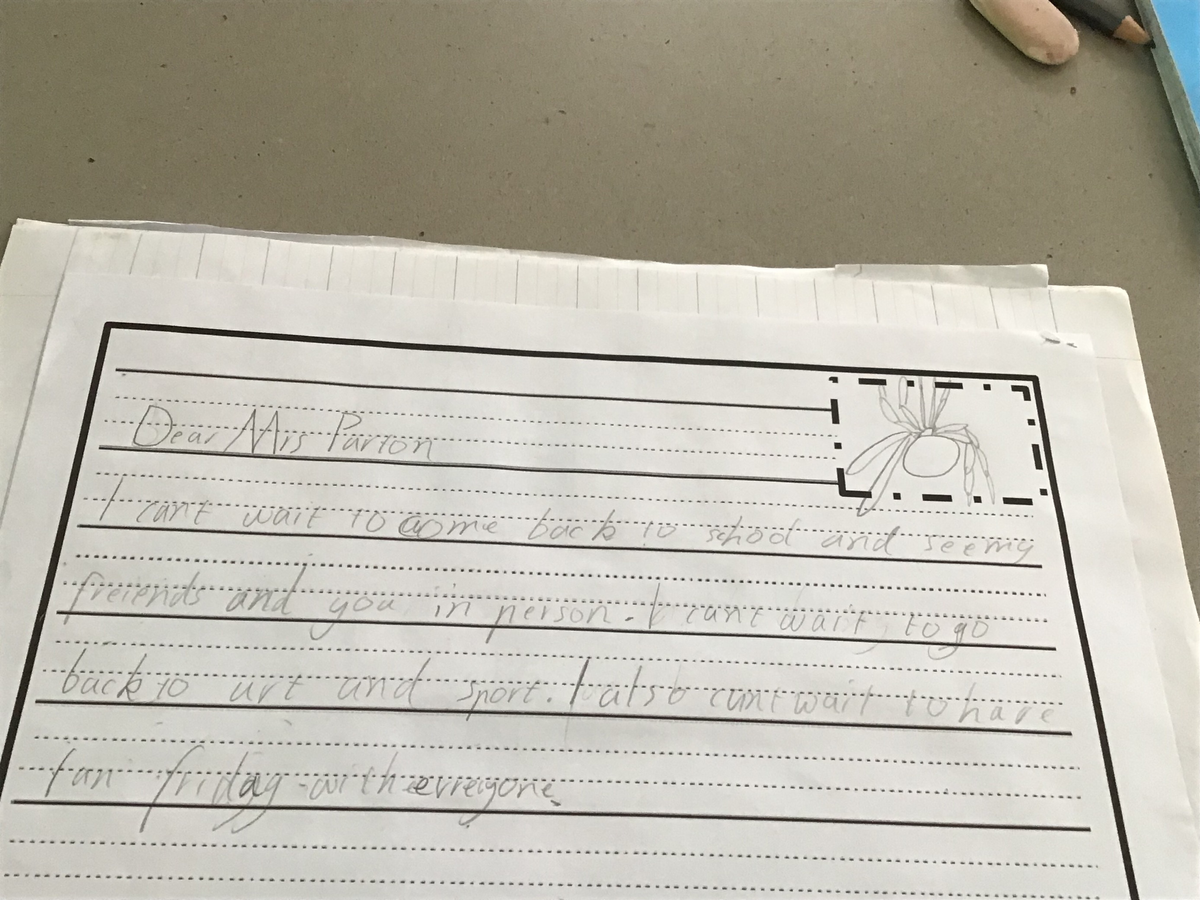 Dear Mrs Parton
I cant wait to come back to school and see my
freiends and you in person. I cant wait to go
back to art and sport. I also cant wait to have
fan friday with everyone.